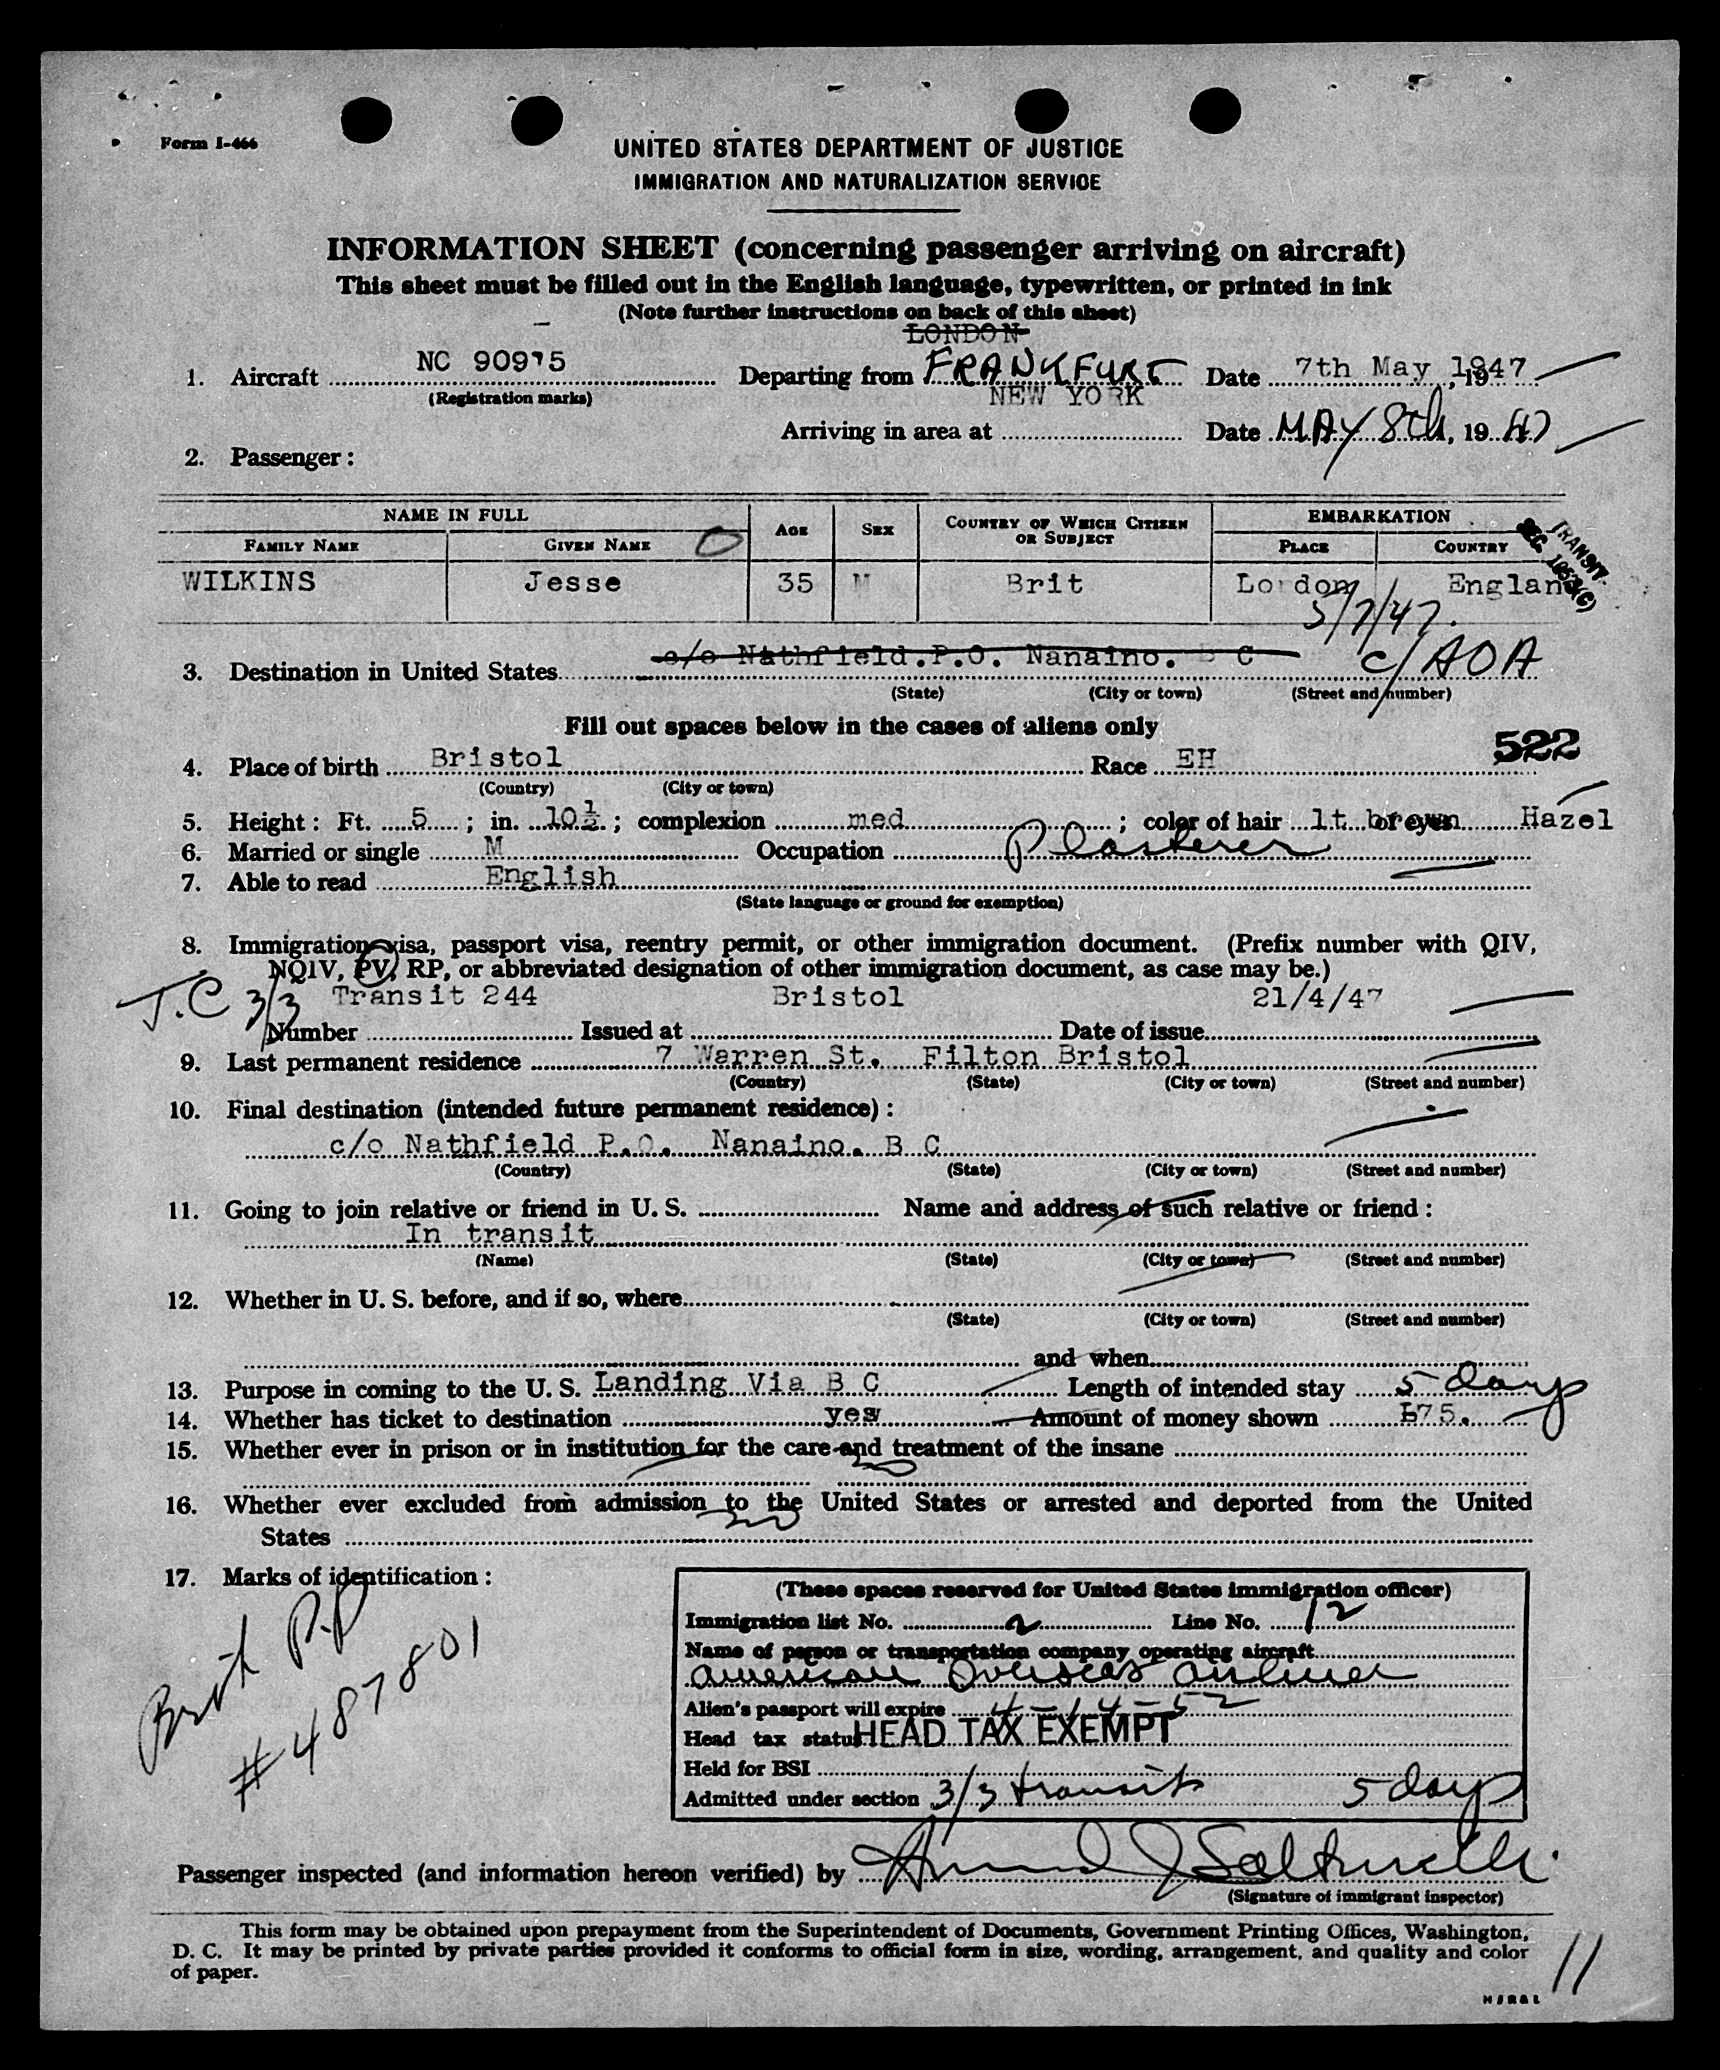 Form I-466
UNITED STATES DEPARTMENT OF JUSTICE
IMMIGRATION AND NATURALIZATION SERVICE
INFORMATION SHEET (concerning passenger arriving on aircraft)
This sheet must be filled out in the English language, typewritten, or printed in ink
(Note further instructions on back of this sheet)
LONDON
1. Aircraft NC 90915 Departing from FRANKFURT Date 7th May 1947, 19
(Registration marks) NEW YORK
Arriving in area at Date MAY 8th, 19 47
2. Passenger:
NAME IN FULL AGE SEX COUNTRY OF WHICH CITIZEN OR SUBJECT EMBARKATION
FAMILY NAME GIVEN NAME PLACE COUNTRY
TRANSIT
WILKINS Jesse 35 M Brit London England
5/7/47.
3. Destination in United States c/o Nathfield.P.O. Nanaino. B C c/AOA
(State) (City or town) (Street and number)
Fill out spaces below in the cases of aliens only
522
4. Place of birth Bristol Race EH
(Country) (City or town)
5. Height: Ft. 5; in. 10½; complexion med; color of hair lt brown of eyes Hazel
6. Married or single M Occupation Plasterer
7. Able to read English
(State language or ground for exemption)
8. Immigration visa, passport visa, reentry permit, or other immigration document. (Prefix number with QIV,
NQIV, PV, RP, or abbreviated designation of other immigration document, as case may be.)
T.C 3/3 Transit 244 Bristol 21/4/47
Number Issued at Date of issue
9. Last permanent residence 7 Warren St. Filton Bristol
(Country) (State) (City or town) (Street and number)
10. Final destination (intended future permanent residence):
c/o Nathfield P.O. Nanaino. B C
(Country) (State) (City or town) (Street and number)
11. Going to join relative or friend in U. S. Name and address of such relative or friend:
In transit
(Name) (State) (City or town) (Street and number)
12. Whether in U. S. before, and if so, where
(State) (City or town) (Street and number)
and when
13. Purpose in coming to the U. S. Landing Via B C Length of intended stay 5 days
14. Whether has ticket to destination yes Amount of money shown £75.
15. Whether ever in prison or in institution for the care and treatment of the insane
no
16. Whether ever excluded from admission to the United States or arrested and deported from the United
no
States
17. Marks of identification:
Brit P.P
#487801
(These spaces reserved for United States immigration officer)
Immigration list No. 2 Line No. 12
Name of person or transportation company operating aircraft
American Overseas Airlines
Alien's passport will expire 4-14-52
Head tax status HEAD TAX EXEMPT
Held for BSI
Admitted under section 3/3 transit 5 days
Passenger inspected (and information hereon verified) by
(Signature of immigrant inspector)
This form may be obtained upon prepayment from the Superintendent of Documents, Government Printing Offices, Washington,
D. C. It may be printed by private parties provided it conforms to official form in size, wording, arrangement, and quality and color
of paper.
11